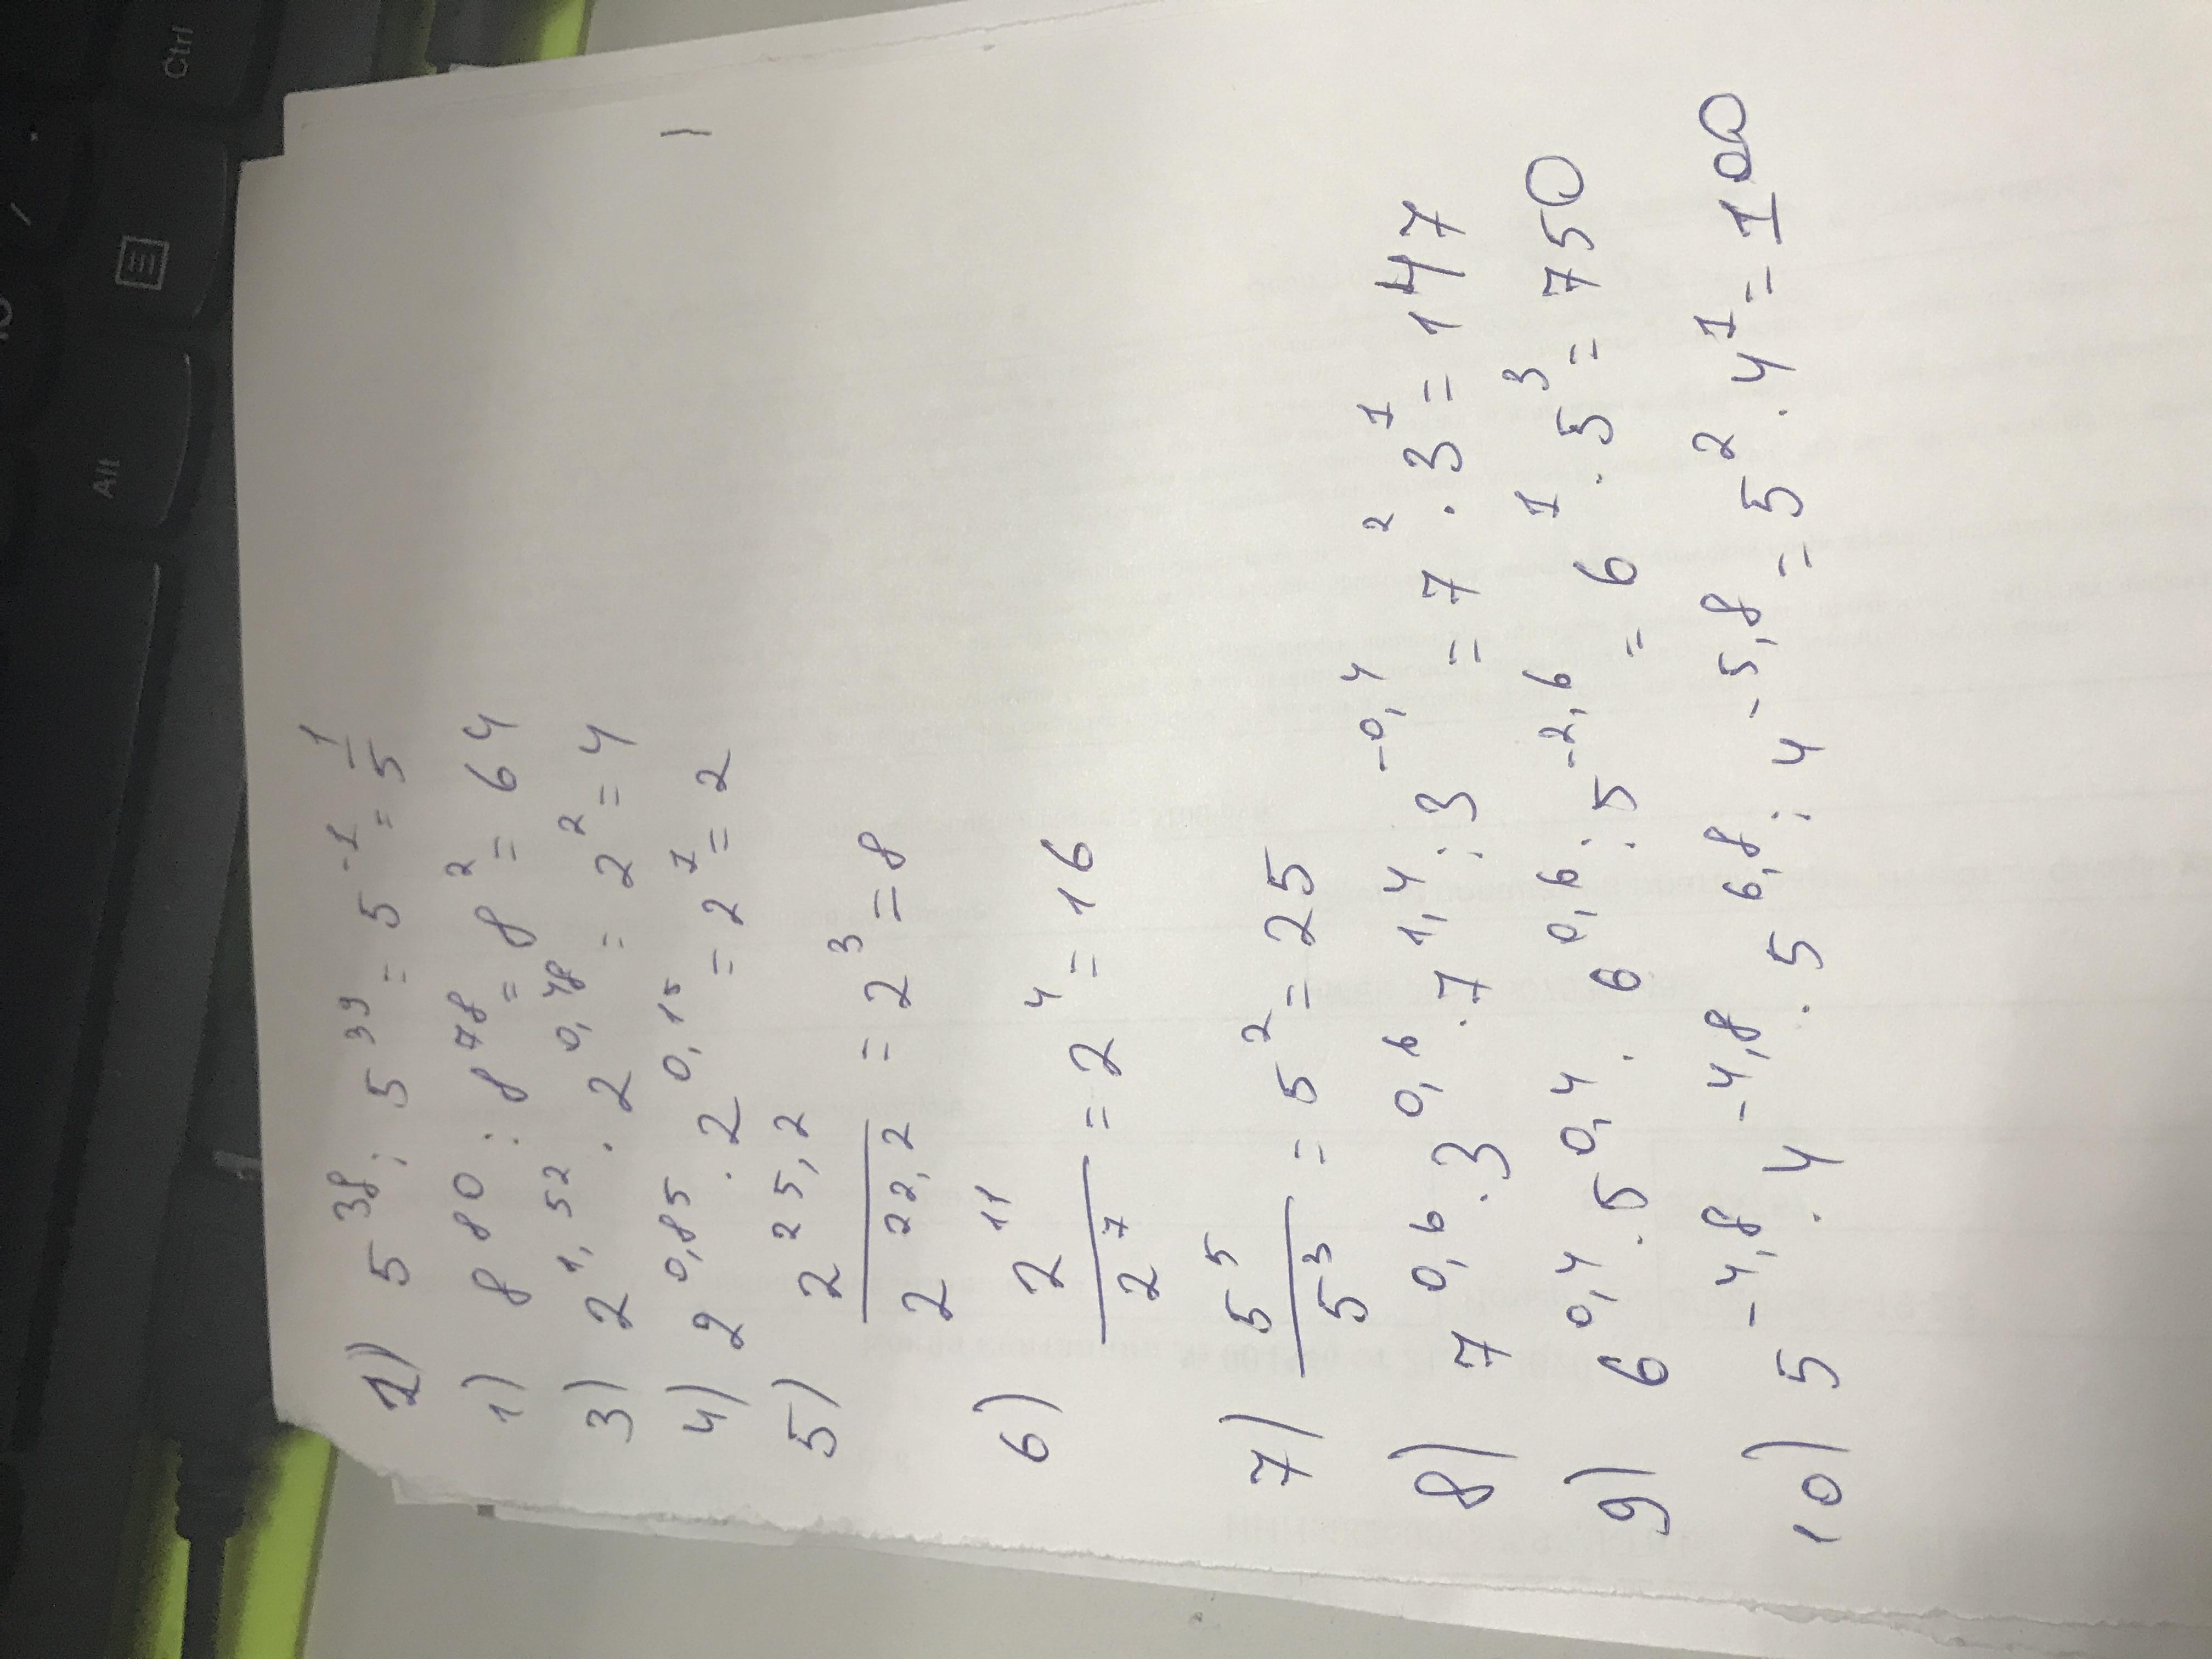 2) 5³⁸ : 5³⁹ = 5⁻¹ = 1/5
1) 8⁸⁰ : 8⁷⁸ = 8² = 64
3) 2¹,⁵² · 2⁰,⁴⁸ = 2² = 4
4) 2⁰,⁸⁵ · 2⁰,¹⁵ = 2¹ = 2
5) 2²⁵,² / 2²²,² = 2³ = 8
6) 2¹¹ / 2⁷ = 2⁴ = 16
7) 5⁵ / 5³ = 5² = 25
8) 7⁰,⁶ · 3⁰,⁶ · 7¹,⁴ : 3⁻⁰,⁴ = 7² · 3¹ = 147
9) 6⁰,⁴ · 5⁰,⁴ · 6⁰,⁶ : 5⁻²,⁶ = 6¹ · 5³ = 750
10) 5⁻⁴,⁸ · 4⁻⁴,⁸ · 5⁶,⁸ : 4⁻⁵,⁸ = 5² · 4¹ = 100
Ctrl
Alt